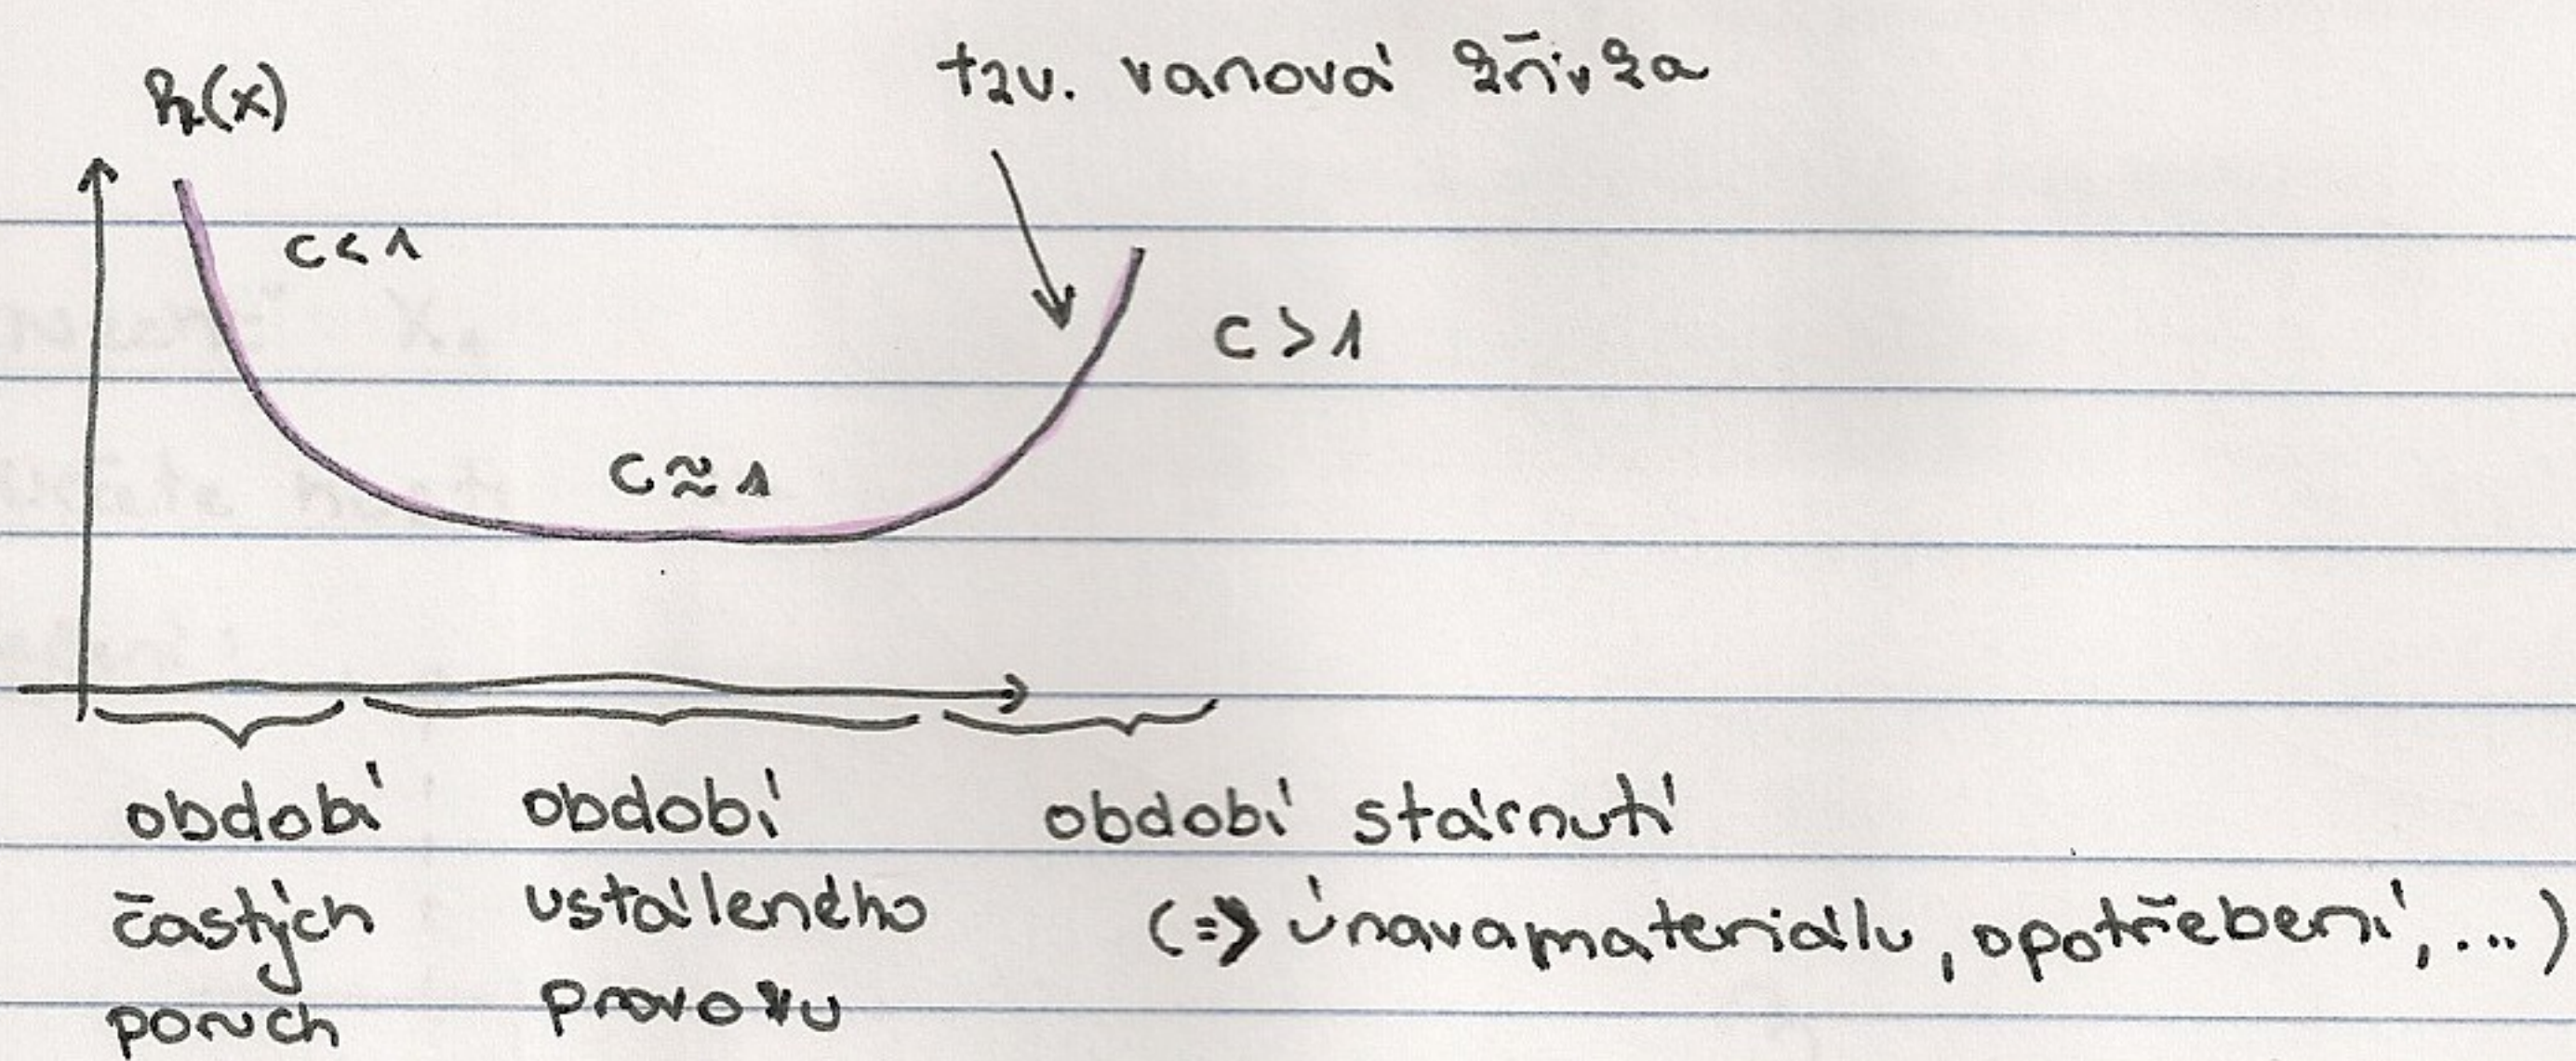 h(x)
tzv. vanová křivka
c < 1
c > 1
c ≈ 1
období
častých
poruch
období
ustáleného
provozu
období stárnutí
(⇒ únava materiálu, opotřebení, ...)